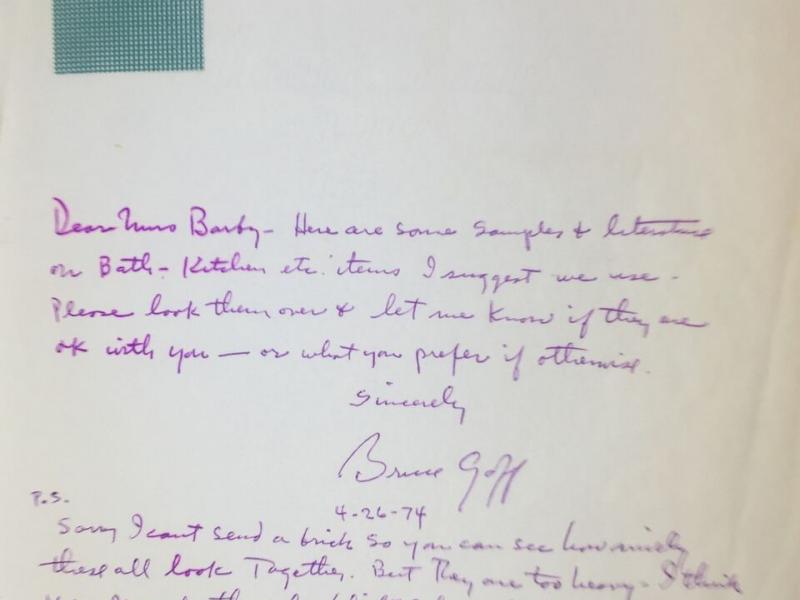 Dear Mrs Barby - Here are some samples & literature
on Bath - Kitchen etc. items I suggest we use -
Please look them over & let me know if they are
ok with you — or what you prefer if otherwise.
Sincerely
Bruce Goff
4-26-74
P.S.
Sorry I cant send a brick so you can see how nicely
these all look Together. But They are too heavy - I think